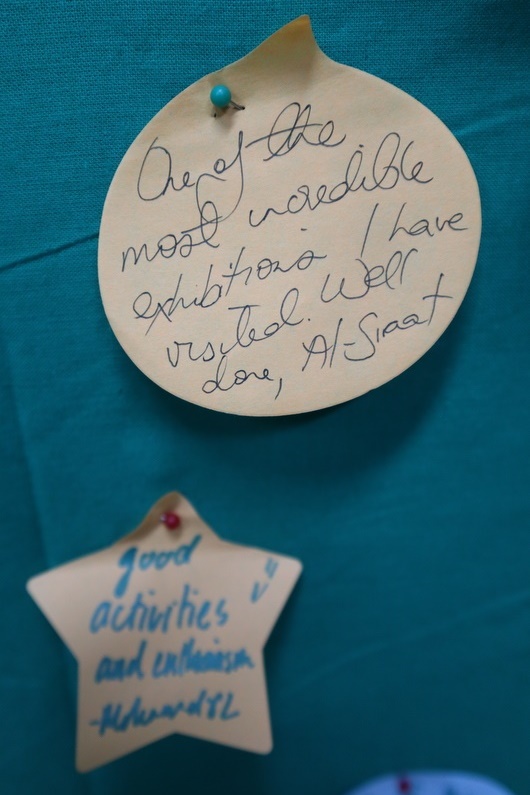 One of the
most incredible
exhibitions I have
visited. Well
done, Al-Siraat
good
activities
and